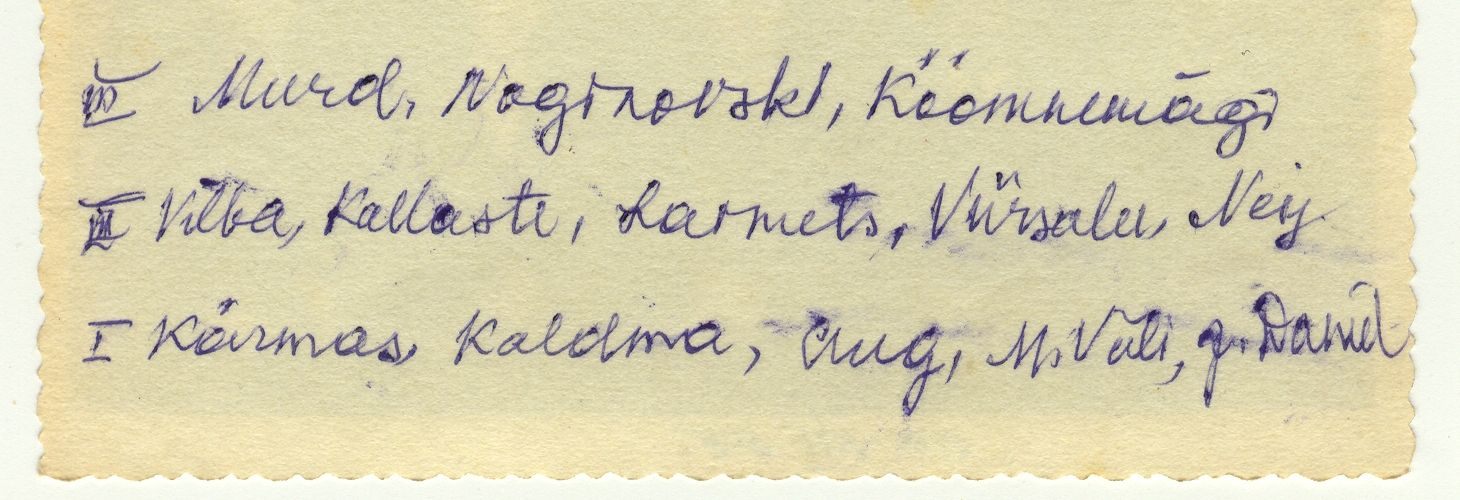 III Murd, Noginovski, Köömnemägi
II Vilba, Kallaste, Larmets, Viirsalu, Ney
I Kärmas, Kaldma, Aug, M. Väli, J. Daniel